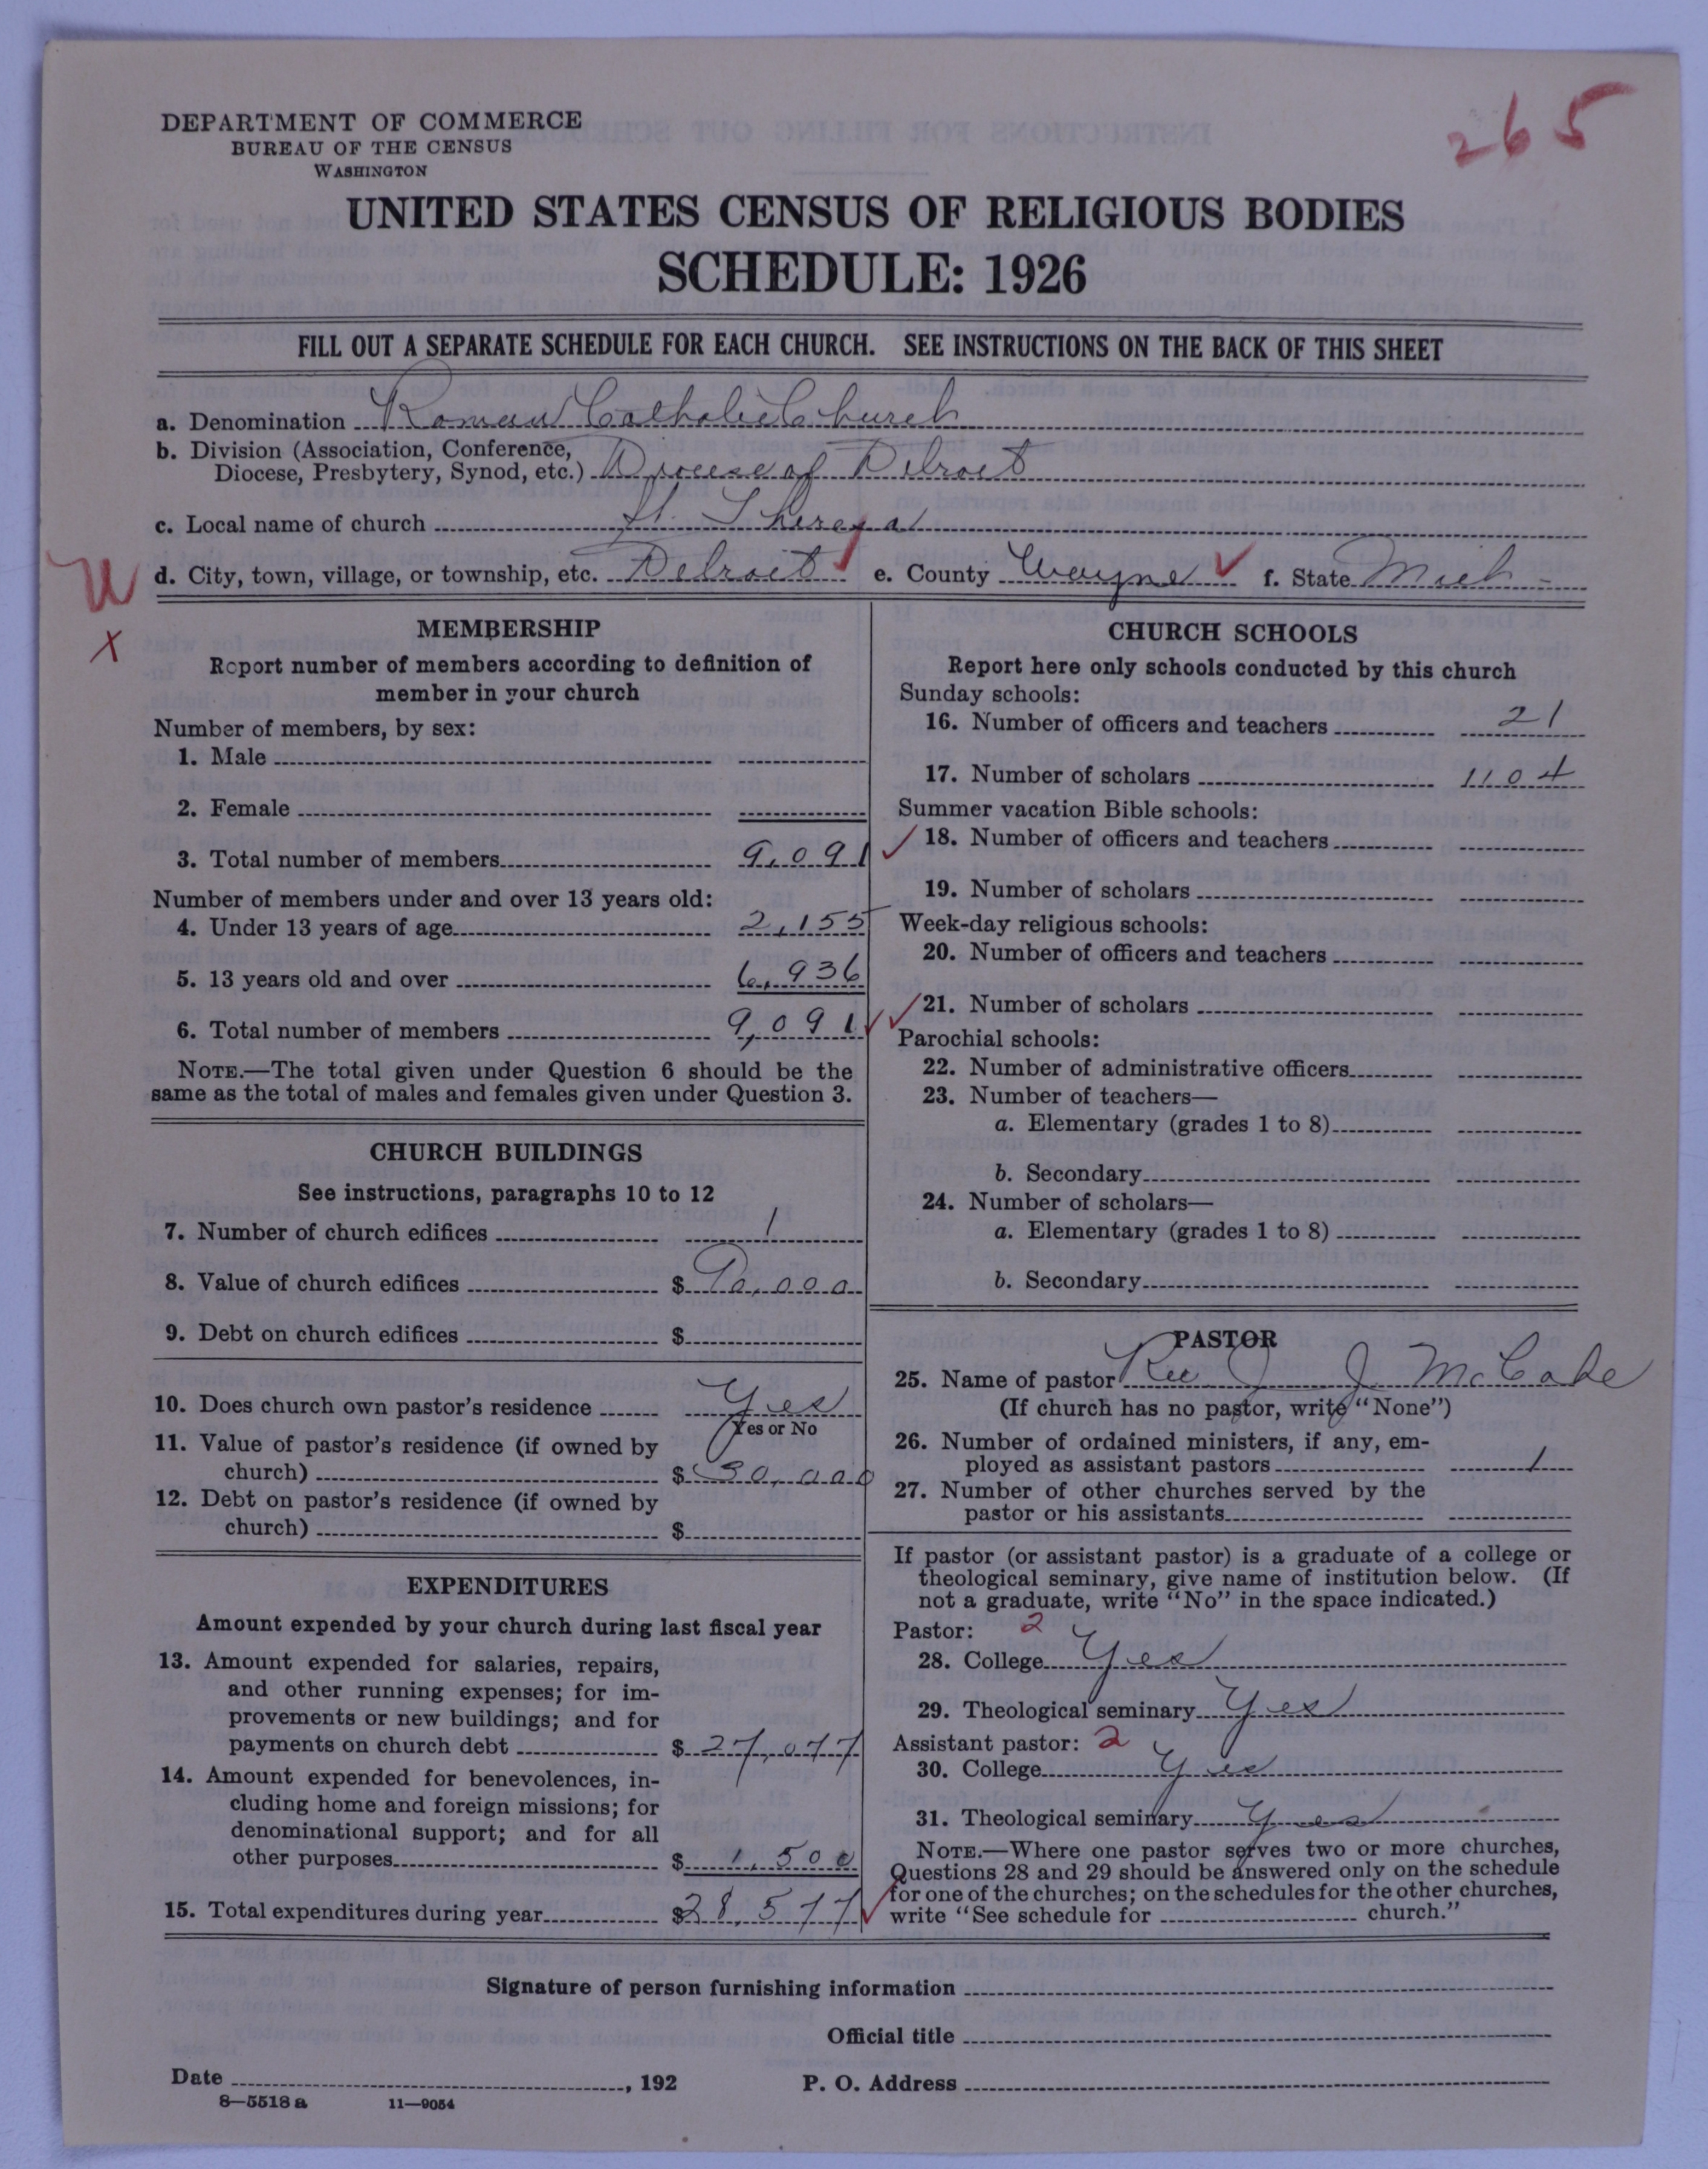 265
DEPARTMENT OF COMMERCE
BUREAU OF THE CENSUS
WASHINGTON
UNITED STATES CENSUS OF RELIGIOUS BODIES
SCHEDULE: 1926
FILL OUT A SEPARATE SCHEDULE FOR EACH CHURCH. SEE INSTRUCTIONS ON THE BACK OF THIS SHEET
a. Denomination Roman Catholic Church
b. Division (Association, Conference,
Diocese, Presbytery, Synod, etc.) Diocese of Detroit
c. Local name of church St. Theresa
W d. City, town, village, or township, etc. Detroit ✓ e. County Wayne ✓ f. State Mich -
X
MEMBERSHIP
Report number of members according to definition of
member in your church
Number of members, by sex:
1. Male
2. Female
3. Total number of members 9,091
Number of members under and over 13 years old:
4. Under 13 years of age 2,155
5. 13 years old and over 6,936
6. Total number of members 9,091 ✓
NOTE.—The total given under Question 6 should be the
same as the total of males and females given under Question 3.
CHURCH BUILDINGS
See instructions, paragraphs 10 to 12
7. Number of church edifices 1
8. Value of church edifices $ 90,000
9. Debt on church edifices $
10. Does church own pastor's residence Yes
Yes or No
11. Value of pastor's residence (if owned by
church) $ 30,000
12. Debt on pastor's residence (if owned by
church) $
EXPENDITURES
Amount expended by your church during last fiscal year
13. Amount expended for salaries, repairs,
and other running expenses; for im-
provements or new buildings; and for
payments on church debt $ 27,077
14. Amount expended for benevolences, in-
cluding home and foreign missions; for
denominational support; and for all
other purposes $ 1,500
15. Total expenditures during year $28,577 ✓
CHURCH SCHOOLS
Report here only schools conducted by this church
Sunday schools:
16. Number of officers and teachers 21
17. Number of scholars 1104
Summer vacation Bible schools:
✓ 18. Number of officers and teachers
19. Number of scholars
Week-day religious schools:
20. Number of officers and teachers
✓ 21. Number of scholars
Parochial schools:
22. Number of administrative officers
23. Number of teachers—
a. Elementary (grades 1 to 8)
b. Secondary
24. Number of scholars—
a. Elementary (grades 1 to 8)
b. Secondary
PASTOR
25. Name of pastor Rev J J McCabe
(If church has no pastor, write "None")
26. Number of ordained ministers, if any, em-
ployed as assistant pastors 1
27. Number of other churches served by the
pastor or his assistants
If pastor (or assistant pastor) is a graduate of a college or
theological seminary, give name of institution below. (If
not a graduate, write "No" in the space indicated.)
Pastor: 2
28. College Yes
29. Theological seminary Yes
Assistant pastor: 2
30. College Yes
31. Theological seminary Yes
NOTE.—Where one pastor serves two or more churches,
Questions 28 and 29 should be answered only on the schedule
for one of the churches; on the schedules for the other churches,
write "See schedule for church."
Signature of person furnishing information
Official title
Date , 192 P. O. Address
8—5518 a 11—9054